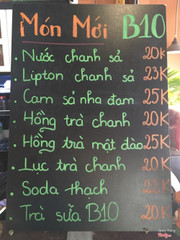 Món Mới B10
. Nước chanh sả 20K
. Lipton chanh sả 23K
. Cam sả nha đam 25K
. Hồng trà chanh 20K
. Hồng trà mật đào 25K
. Lục trà chanh 20K
. Soda thạch 20K
. Trà sữa B10 20K